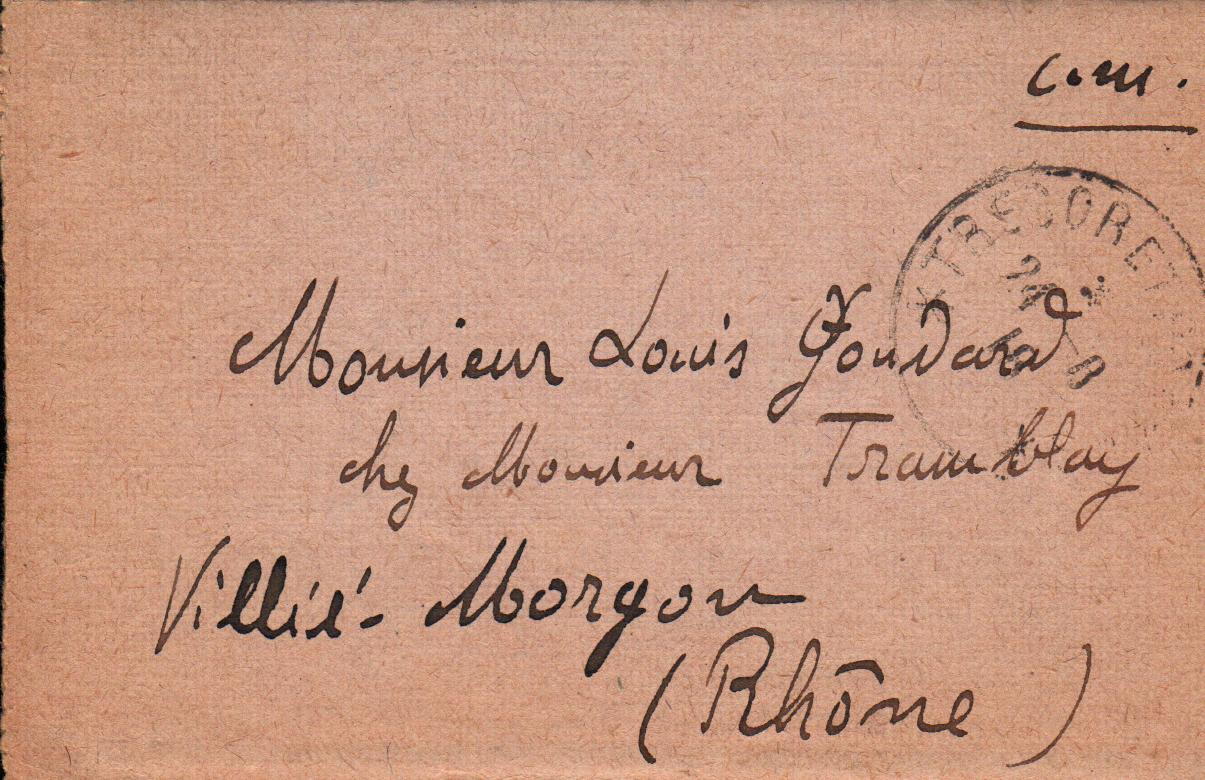 c.m.
*TRESOR ET
Monsieur Louis Goudard
chez Monsieur Tramblay
Villié-Morgon
(Rhône)